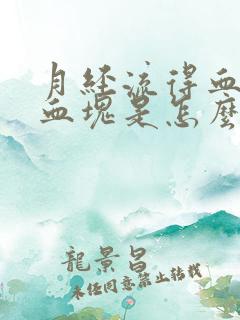 月经流得血
血塊是怎麼
龍景昌
未任同意禁止转载